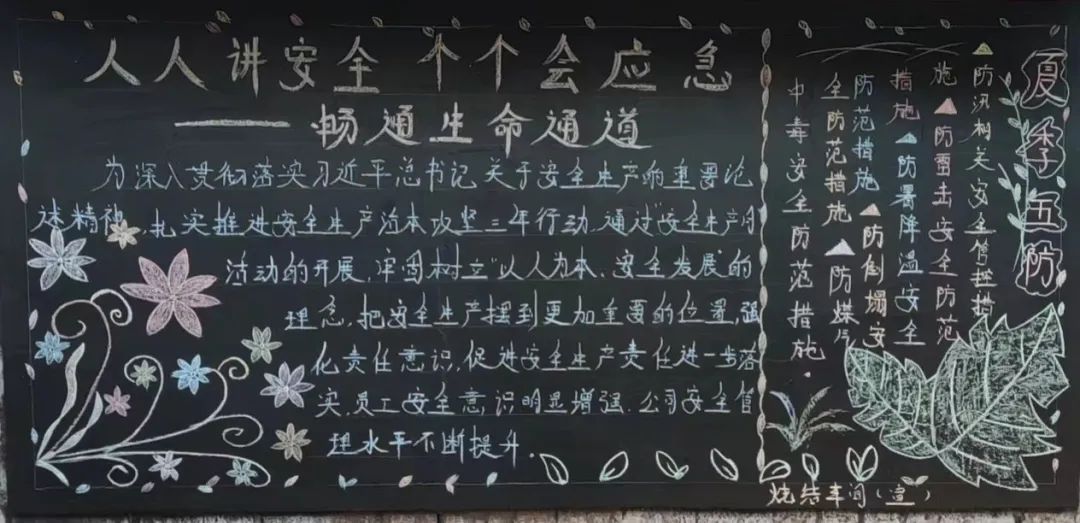 人人讲安全 个个会应急
——畅通生命通道
为深入贯彻落实习近平总书记关于安全生产的重要论
述精神，扎实推进安全生产治本攻坚三年行动，通过“安全生产月
活动的开展，牢固树立“以人为本、安全发展”的
理念，把安全生产摆到更加重要的位置，强
化责任意识，促进安全生产责任进一步落
实，员工安全意识明显增强，公司安全管
理水平不断提升。
夏季五防
▲防汛相关安全管控措
施▲防雷击安全防范
措施▲防暑降温安全
防范措施▲防倒塌安
全防范措施▲防煤气
中毒安全防范措施。
烧结车间（宣）